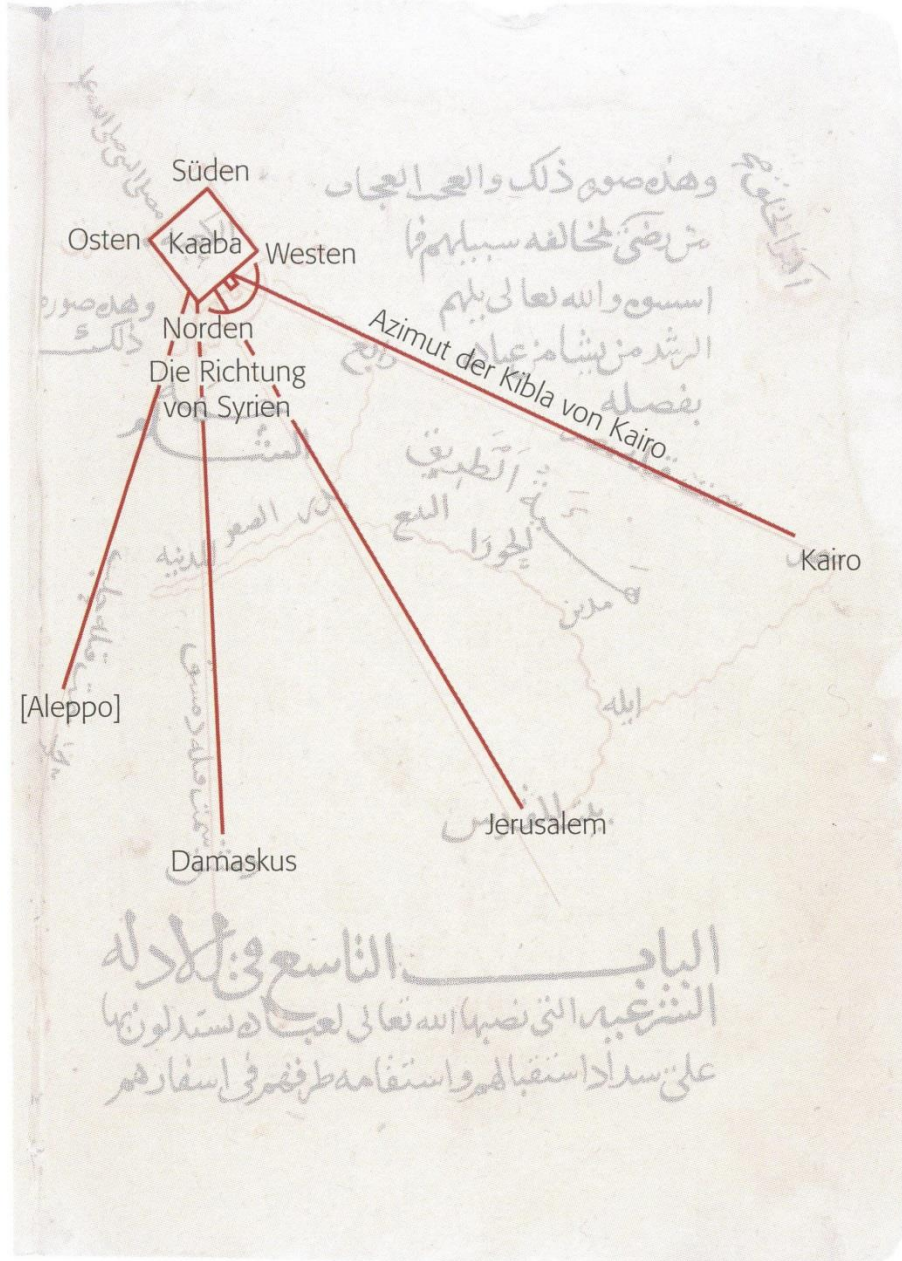 Süden
Osten
Kaaba
Westen
Norden
Die Richtung
von Syrien
Azimut der Kibla von Kairo
Kairo
[Aleppo]
Jerusalem
Damaskus
وهذه صورة ذلك والعجب العجاب
من رضي مخالفه سبيلهم فما
اسسوه والله تعالى يلهم
الرشد من يشا من عباده
بفضله
وهذه صورة
ذلك
الشام
رابغ
الطريق
الحورا
مدين
ايله
الصفر
المدينه
بيت المقدس
البــاب التاسع في الادله
الشرعيه التي نصبها الله تعالى لعباده يستدلون بها
على سداد استقبالهم واستقامه طرقهم في اسفارهم